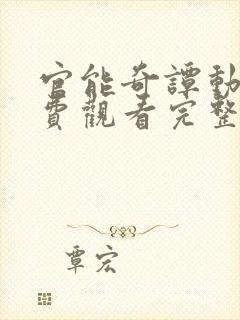 官能奇譚動
費觀看完整
覃宏